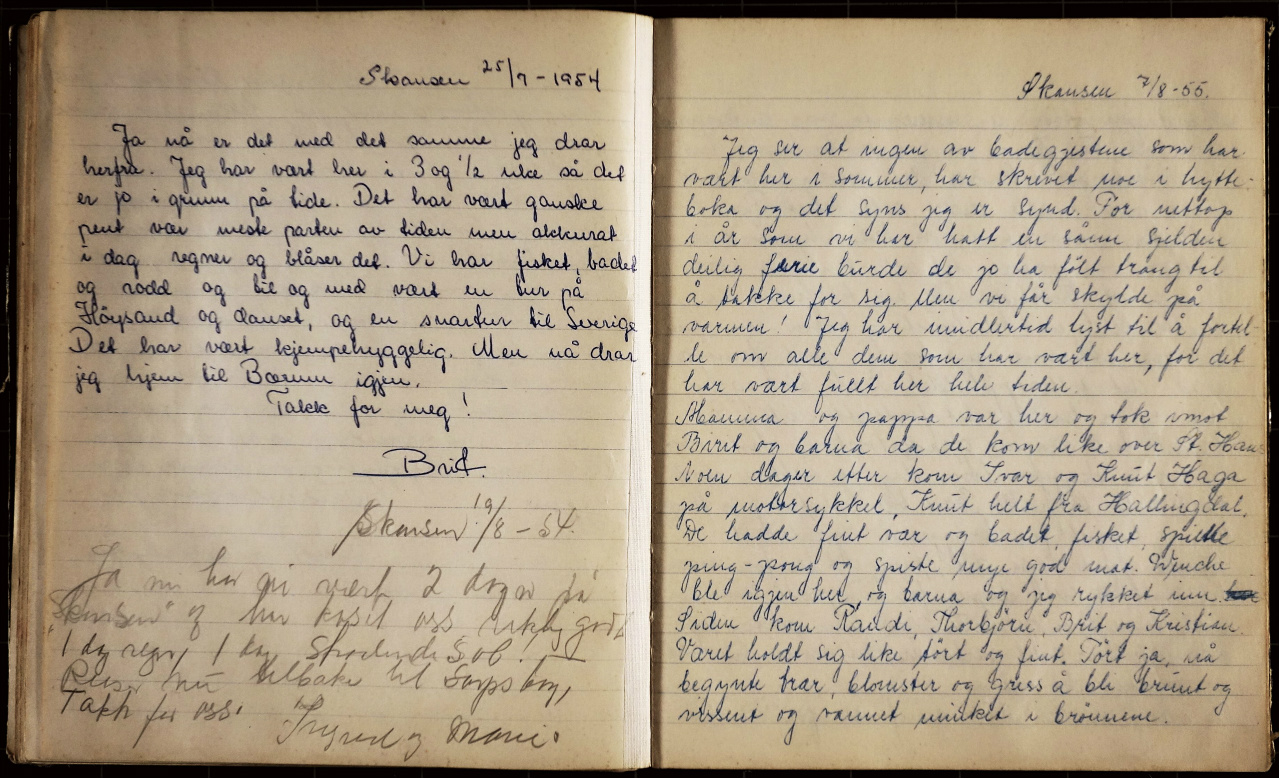 Skansen 25/7-1954
Ja nå er det med det samme jeg drar
herfra. Jeg har vært her i 3 og 1/2 uke så det
er jo i grunn på tide. Det har vært ganske
pent vær meste parten av tiden men akkurat
i dag regner og blåser det. Vi har fisket, badet
og rodd og til og med vært en tur på
Höysand og danset, og en snartur til Sverige
Det har vært kjempehyggelig. Men nå drar
jeg hjem til Bærum igjen.
Takk for meg!
Brit
Skansen 19/8-54.
Ja nu har vi vært 2 dager på
"Skansen" og har kost oss riktig godt
1 dag regn, 1 dag Strålende Sol!
Reiser nu tilbake til Sarpsborg,
Takk for oss.
Ingrid og Marie.
Skansen 7/8-55.
Jeg ser at ingen av badegjestene som har
vært her i sommer, har skrevet noe i hytte-
boka og det syns jeg er synd. For nettop
i år som vi har hatt en sånn sjelden
deilig ferie burde de jo ha fölt trang til
å takke for sig. Men vi får skylde på
varmen! Jeg har imidlertid lyst til å fortel-
le om alle dem som har vært her, for det
har vært fullt her hele tiden.
Mamma og pappa var her og tok imot
Birit og barna da de kom like over St. Hans
Noen dager etter kom Ivar og Knut Haga
på motorsykkel, Knut helt fra Hallingdal.
De hadde fint vær og badet, fisket, spilte
ping-pong og spiste mye god mat. Wenche
ble igjen her, og barna og jeg rykket inn.
Siden kom Randi, Thorbjörn, Brit og Kristian.
Været holdt sig like tört og fint. Tört ja, nå
begynte trær, blomster og gress å bli brunt og
vissent og vannet minket i brönnene.